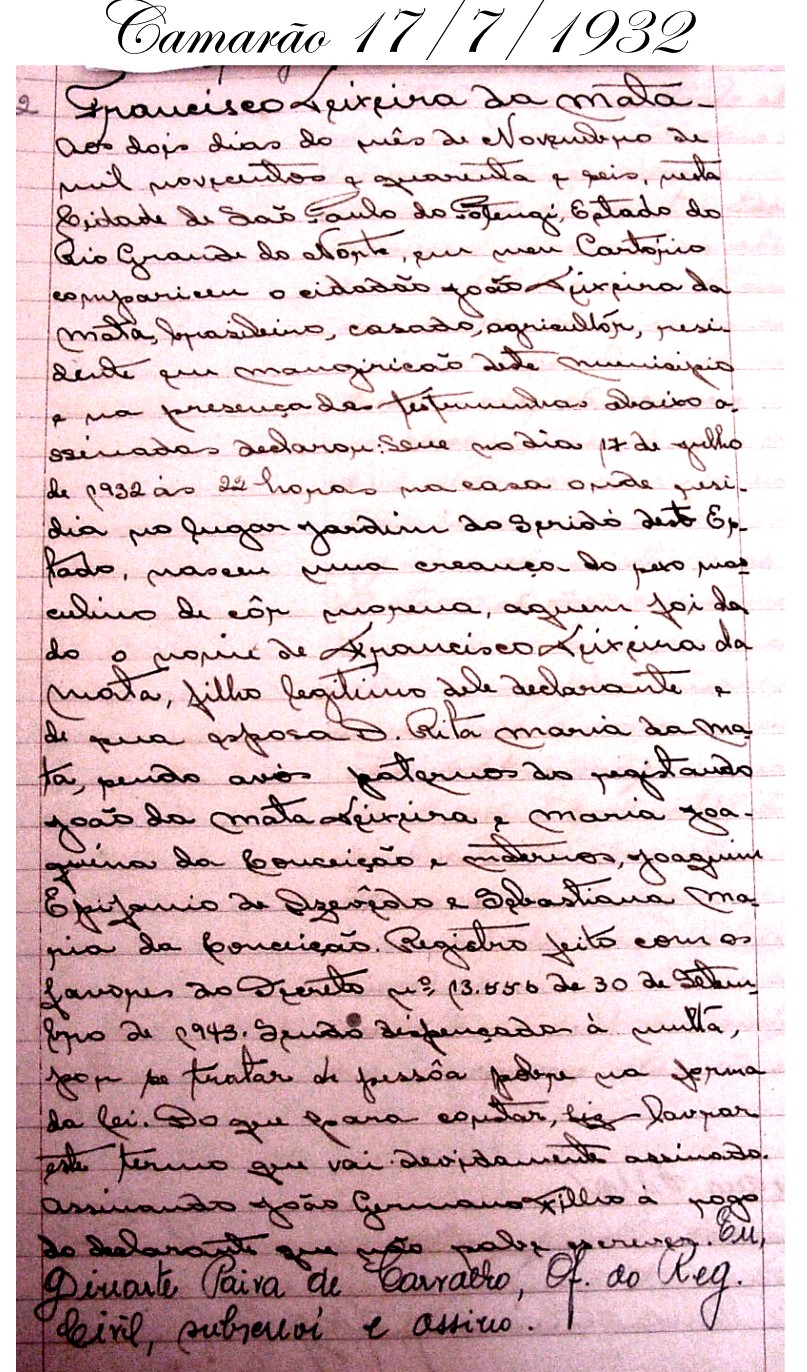 Camarão 17/7/1932
2 Francisco Teixeira da Mata -
Aos dois dias do mês de Novembro de
mil novecentos e quarenta e seis, nesta
Cidade de São Paulo do Potengi, Estado do
Rio Grande do Norte, em meu Cartório
compariceu o cidadão João Teixeira da
Mata, brasileiro, casado, agricultôr, resi-
dente em mangiricão deste municipio
e na presença das testemunhas abaixo a-
ssinadas declarou: Que no dia 17 de julho
de 1932 ás 22 horas na casa onde resi-
dia no lugar Jardim do Seridó deste Es-
tado, nasceu uma creança do sexo mas-
culino de côr morena, aquem foi da
do o nome de Francisco Teixeira da
Mata, filho legítimo dele declarante e
de sua esposa D. Rita Maria da Ma-
ta, sendo avós paternos do registando
João da Mata Teixeira e Maria Joa-
quina da Conceição e maternos, Joaquim
Epifanio de Azevêdo e Sebastiana Ma-
ria da Conceição. Registro feito com os
favores do Decreto nº 13.556 de 30 de Setem-
bro de 1943. Sendo dispençada à multa,
por se tratar de pessôa pobre na forma
da lei. Do que para constar, fiz lavrar
este termo que vai devidamente assinado.
Assinando João Germano Filho à rogo
do declarante que não sabe escrever. Eu,
Dinarte Paiva de Carvalho, Of. do Reg.
Civil, subscreví e assino.